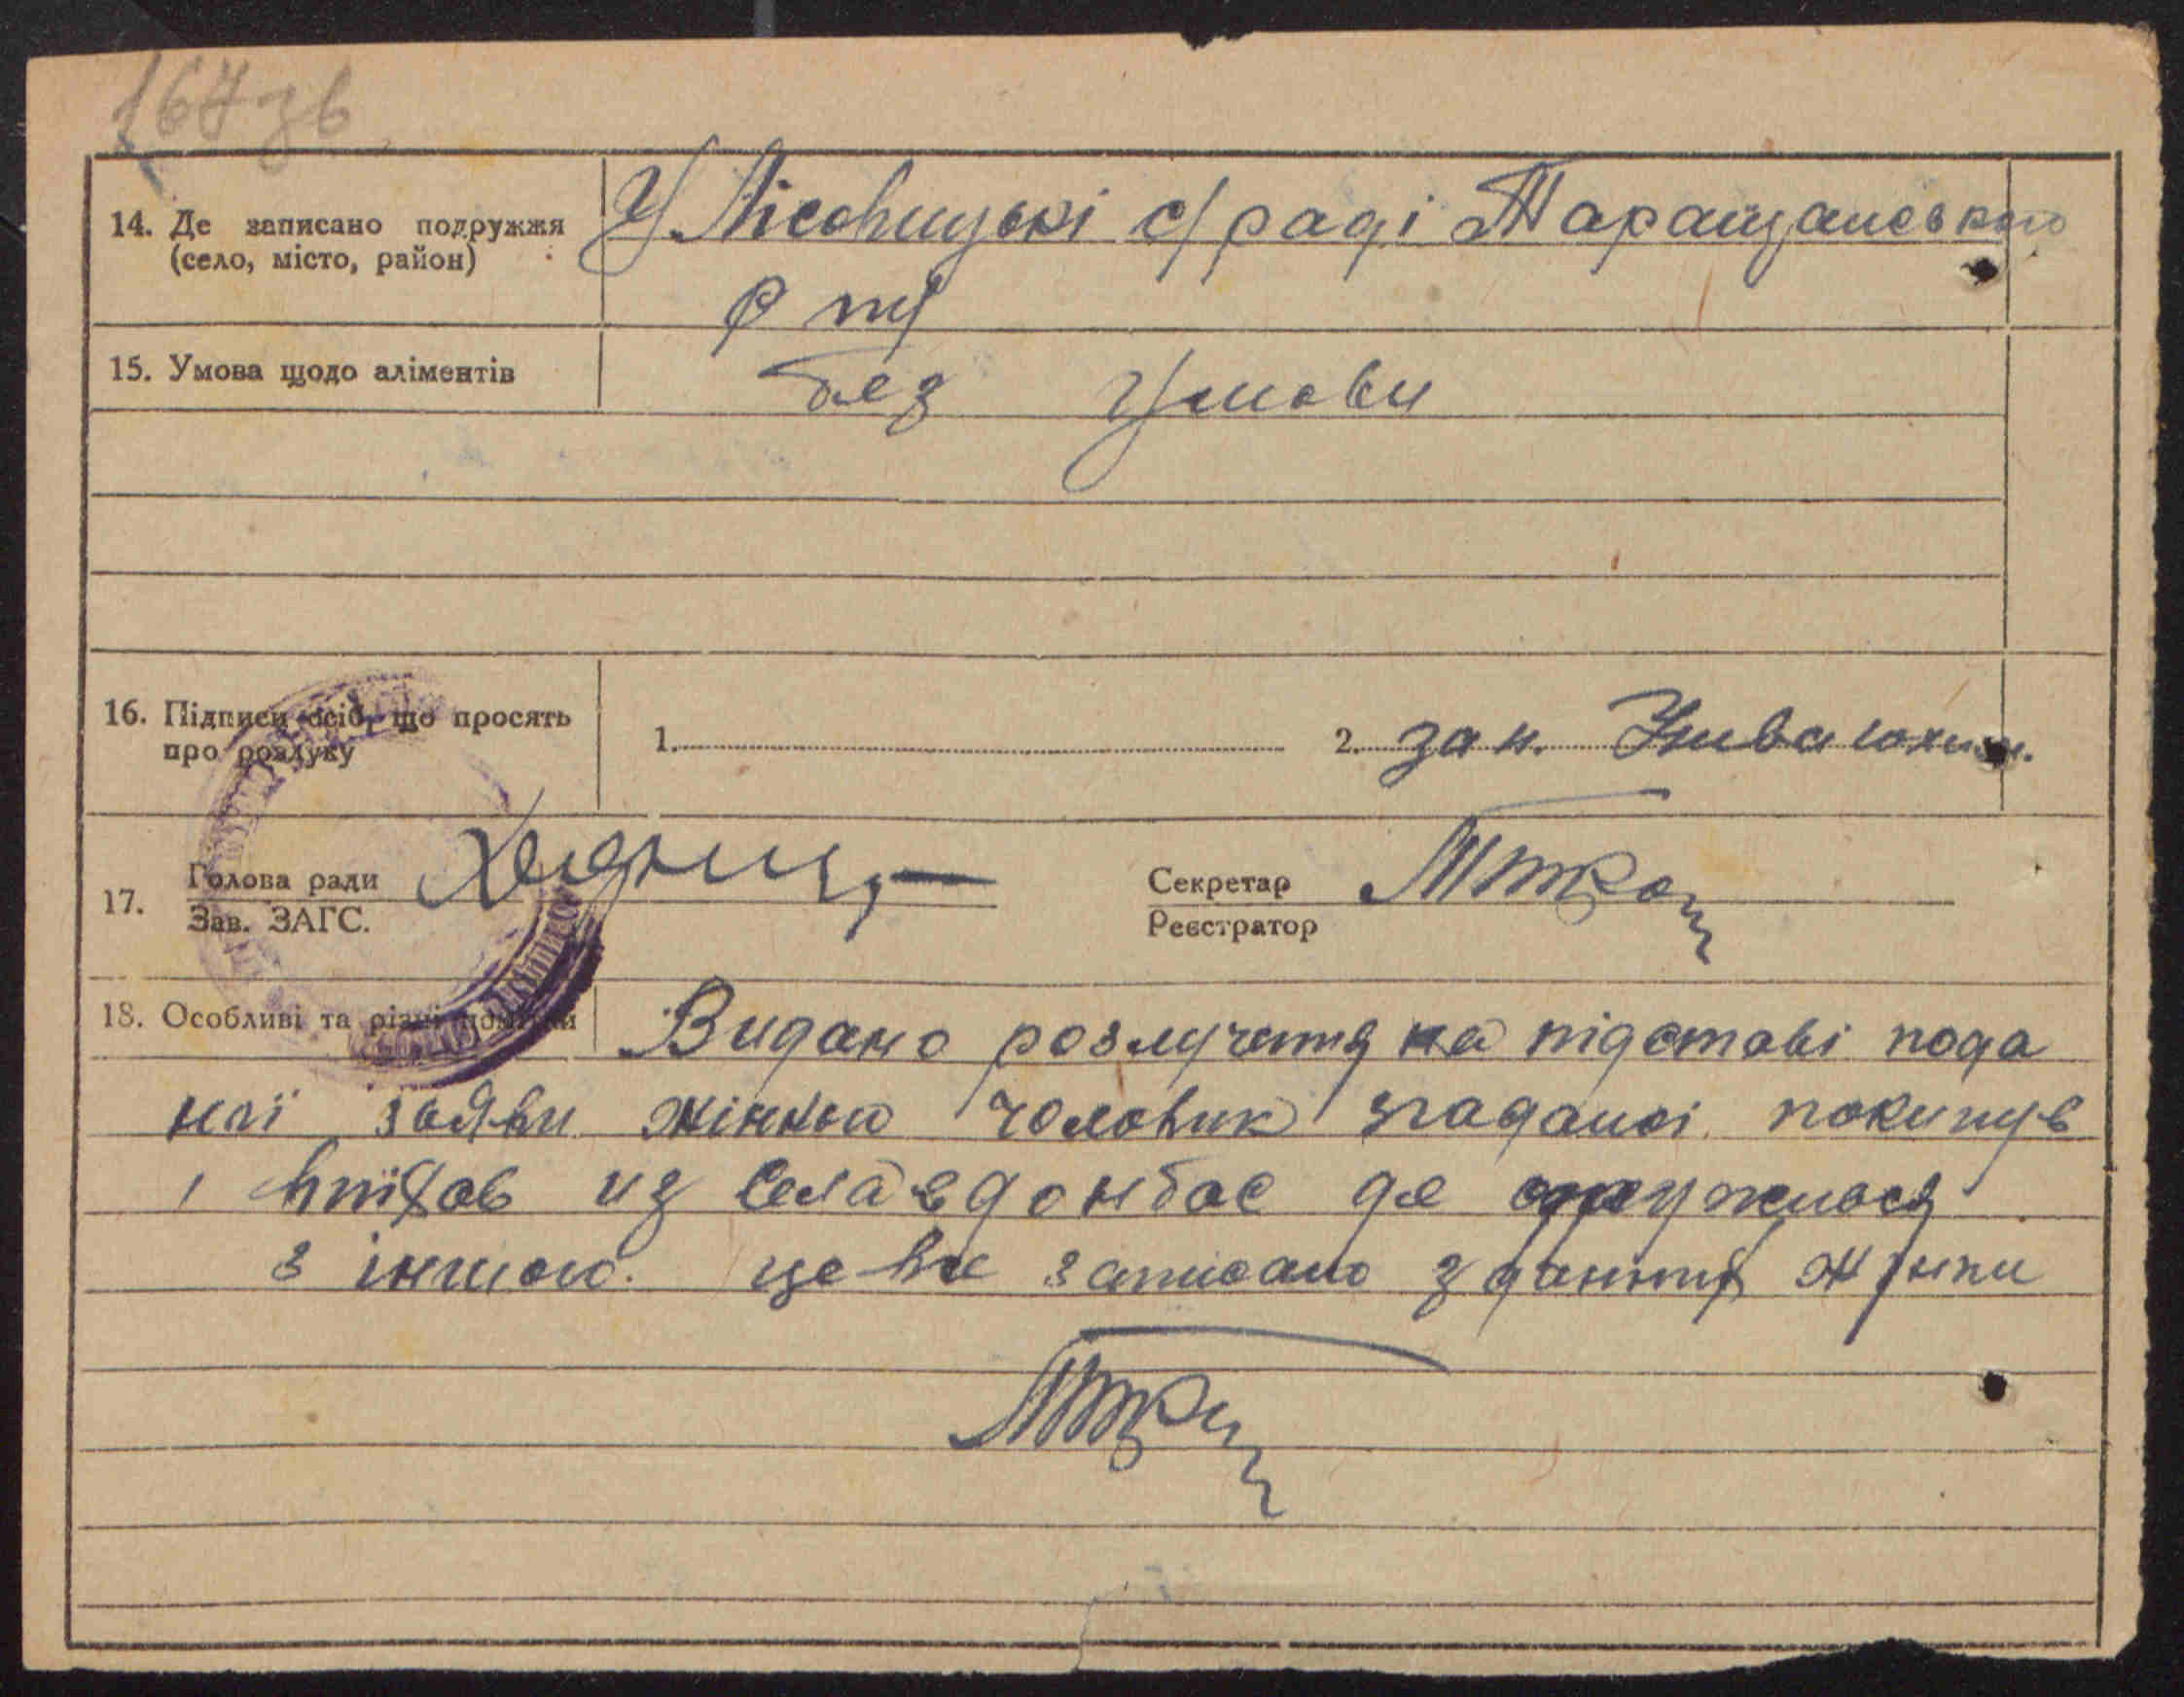 167 зв
14. Де записано подружжя
(село, місто, район)
У Лісовицькі с/раді Таращанського
р ну
15. Умова щодо аліментів
без Умови
16. Підписи осіб, що просять
про розлуку
1.
2. за н.
17. Голова ради
Зав. ЗАГС.
Секретар
Реєстратор
18. Особливі та різні помітки
Видано розлучення на підставі пода
ної заяви жінкою чоловик згаданої покинув
і виїхав из села вдонбас де одружився
з іншою. це все записано з данних жінки